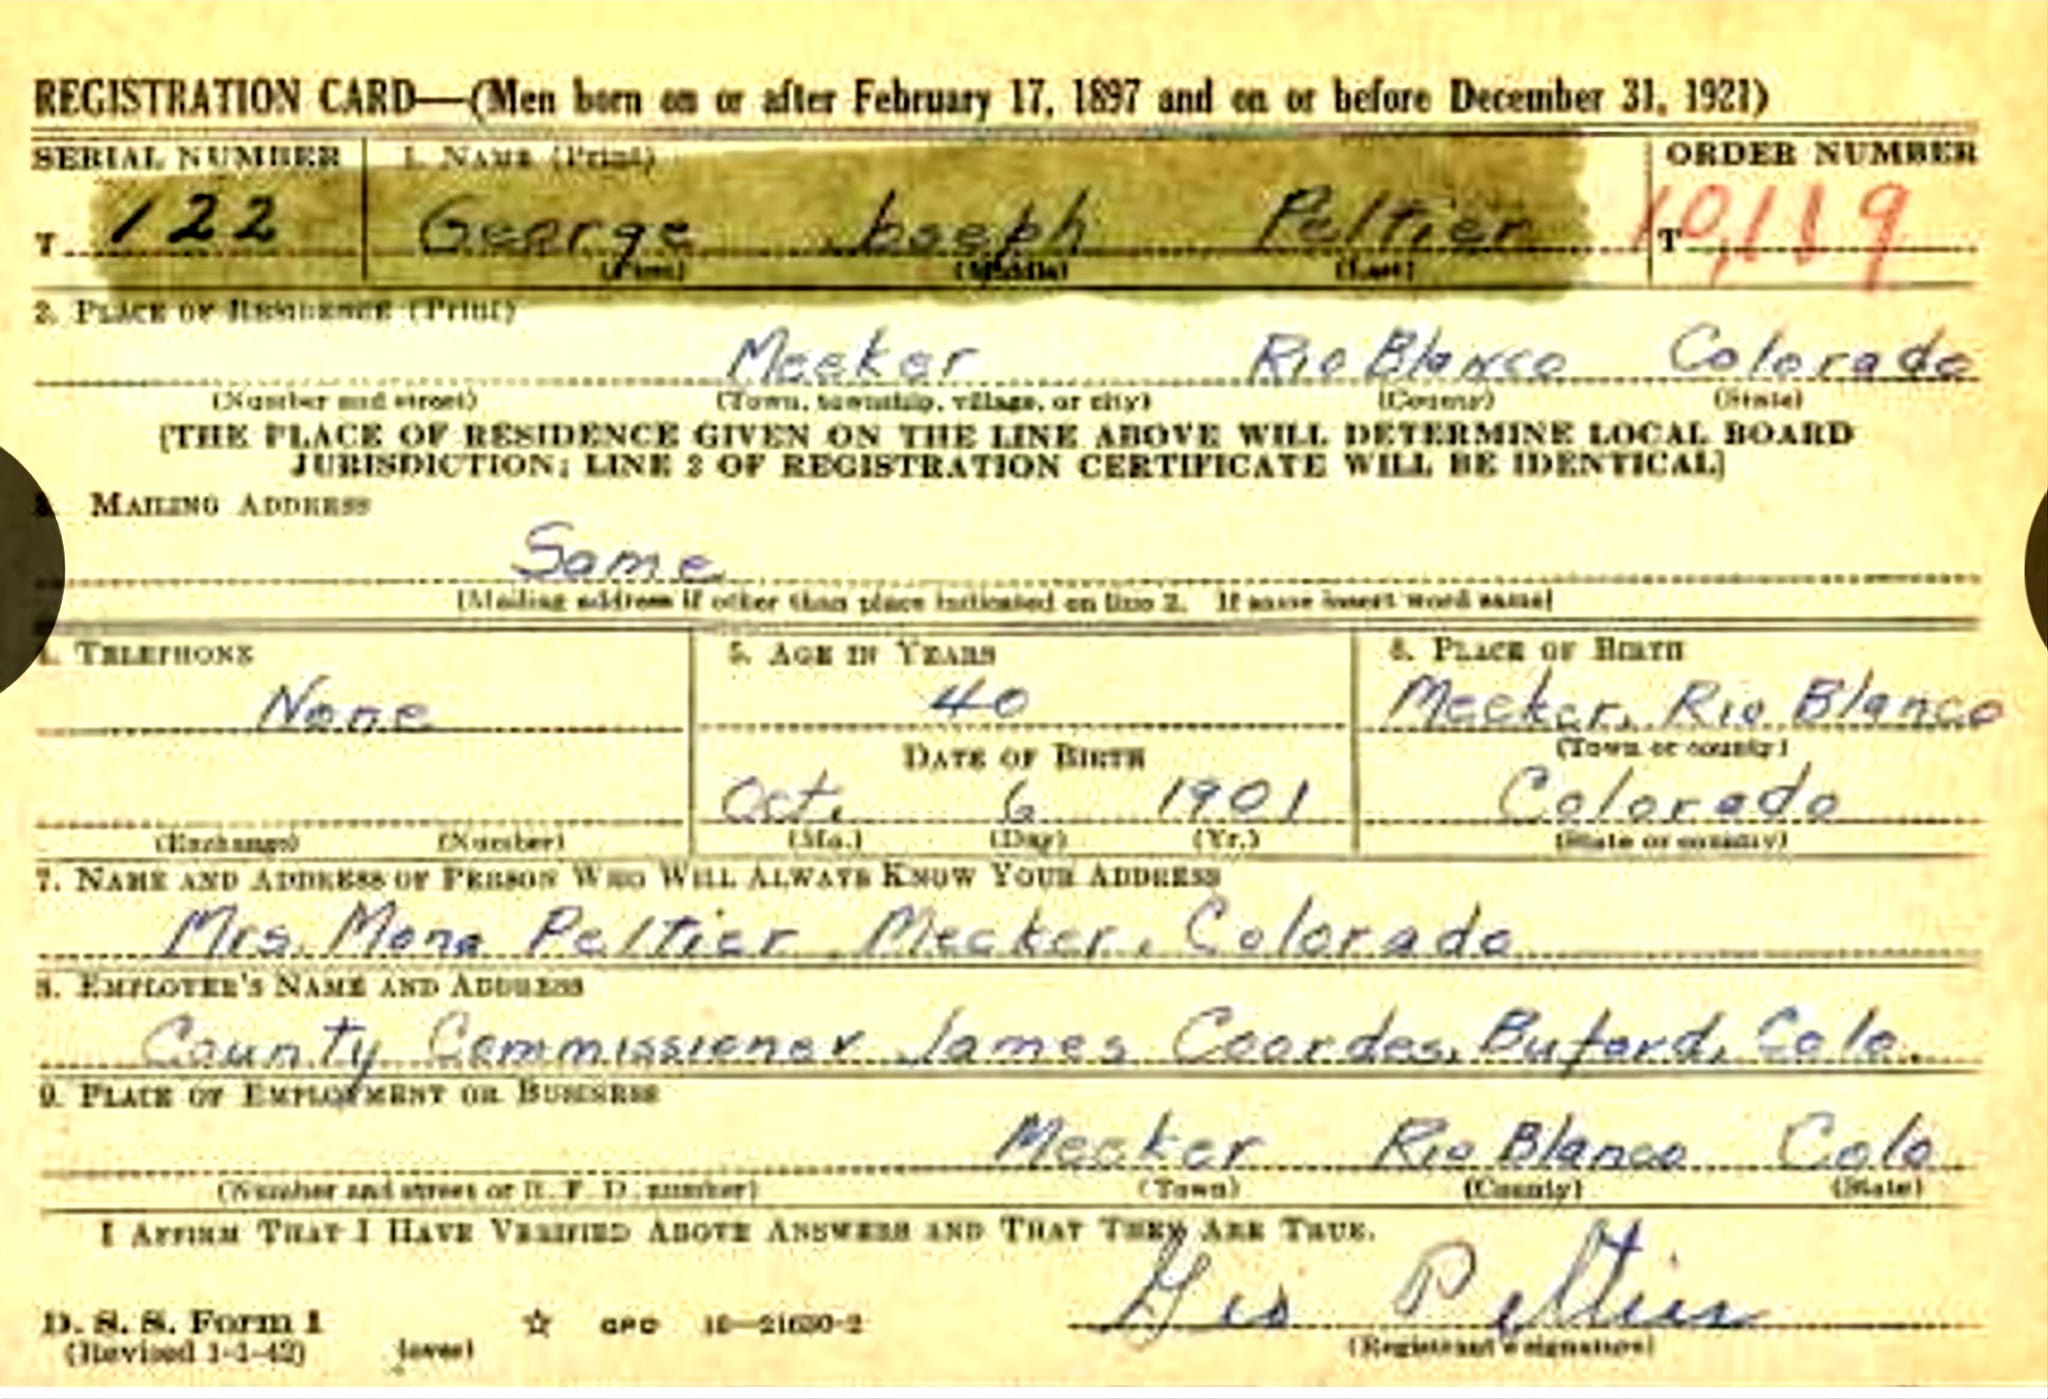 REGISTRATION CARD—(Men born on or after February 17, 1897 and on or before December 31, 1921)
SERIAL NUMBER 1. NAME (Print) ORDER NUMBER
T 122 George Joseph Peltier T 10,119
(First) (Middle) (Last)
2. PLACE OF RESIDENCE (Print)
Meeker Rio Blanco Colorado
(Number and street) (Town, township, village, or city) (County) (State)
[THE PLACE OF RESIDENCE GIVEN ON THE LINE ABOVE WILL DETERMINE LOCAL BOARD
JURISDICTION; LINE 2 OF REGISTRATION CERTIFICATE WILL BE IDENTICAL]
3. MAILING ADDRESS
Same
[Mailing address if other than place indicated on line 2. If same insert word same]
4. TELEPHONE 5. AGE IN YEARS 6. PLACE OF BIRTH
None 40 Meeker, Rio Blanco
DATE OF BIRTH (Town or county)
Oct. 6 1901 Colorado
(Exchange) (Number) (Mo.) (Day) (Yr.) (State or country)
7. NAME AND ADDRESS OF PERSON WHO WILL ALWAYS KNOW YOUR ADDRESS
Mrs. Mona Peltier, Meeker, Colorado
8. EMPLOYER'S NAME AND ADDRESS
County Commissioner James Coordes, Buford, Colo.
9. PLACE OF EMPLOYMENT OR BUSINESS
Meeker Rio Blanco Colo
(Number and street or R. F. D. number) (Town) (County) (State)
I AFFIRM THAT I HAVE VERIFIED ABOVE ANSWERS AND THAT THEY ARE TRUE.
Geo Peltier
D. S. S. Form 1 ☆ GPO 16—21630-2
(Revised 1-1-42) (over) (Registrant's signature)